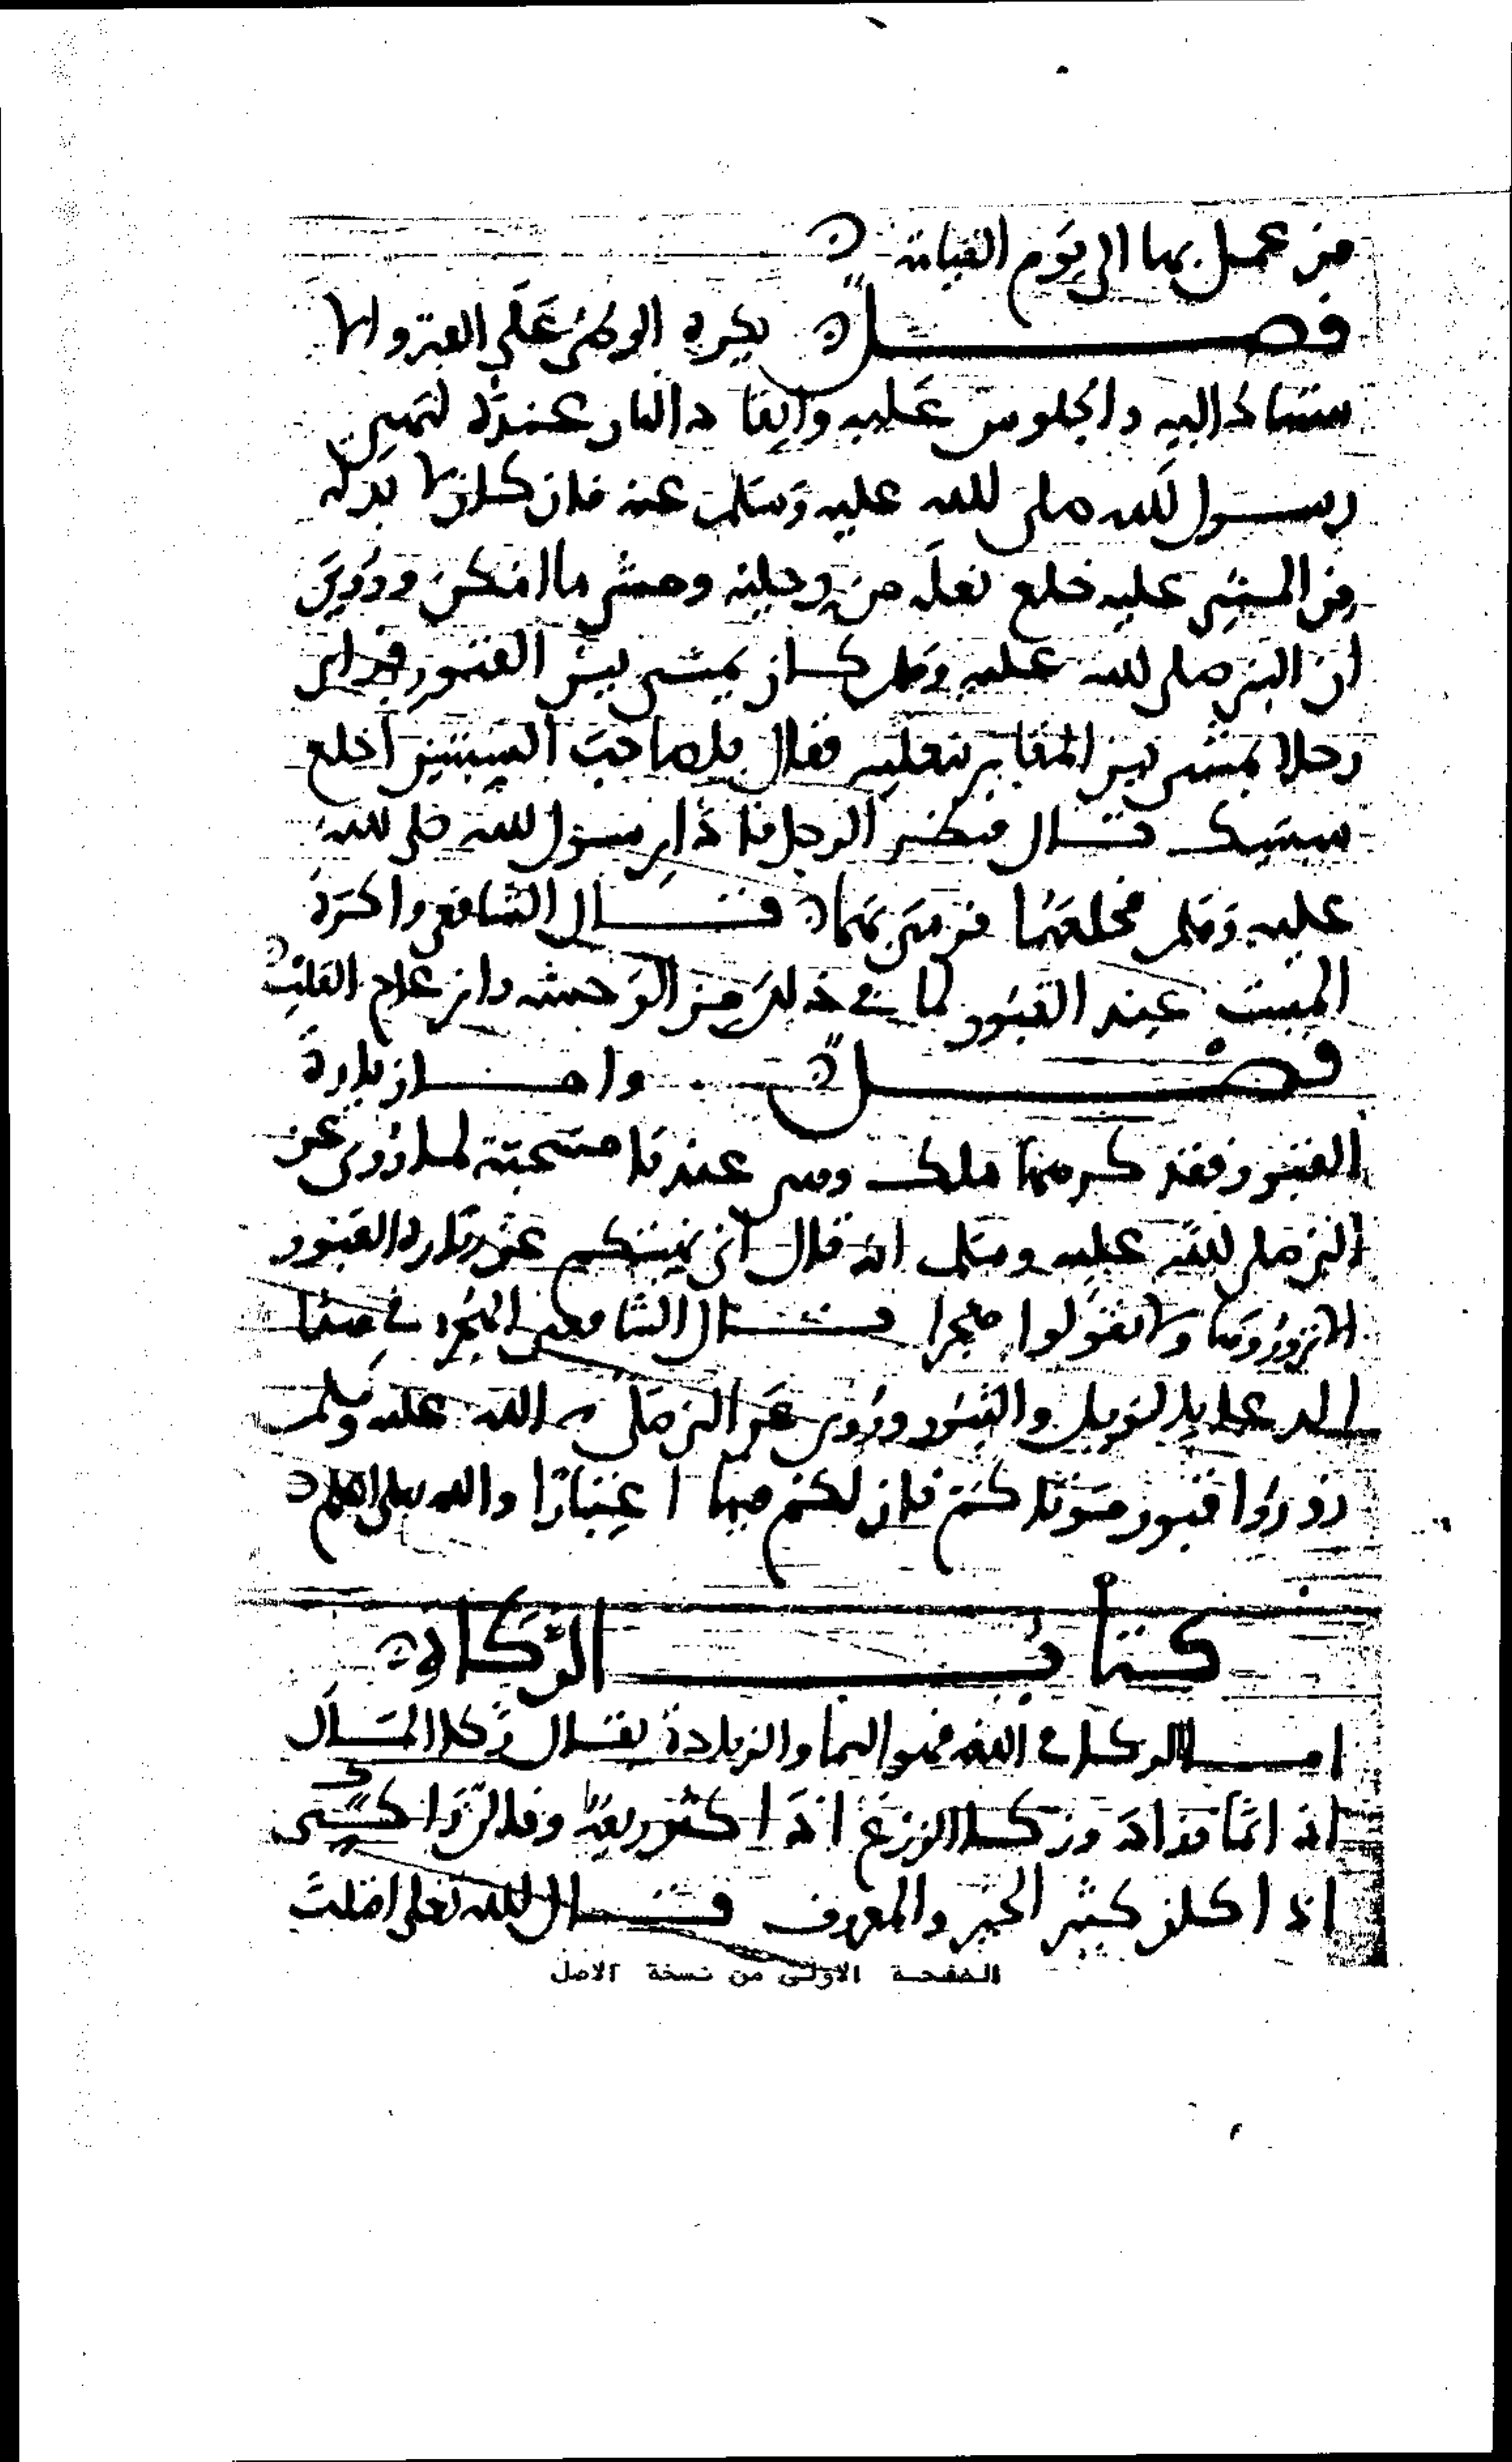 من عمل بها الى يوم القيامة
فصل يكره الوطئ على القبر والا
ستناد اليه والجلوس عليه وايقاد النار عنده لنهي
رسول الله صلى الله عليه وسلم عنه فان كان لا بد له
من المشي عليه خلع نعله من رجليه ومشى ما امكن وروي
ان النبي صلى الله عليه وسلم كان يمشي بين القبور فراى
رجلا يمشي بين المقابر بنعليه فقال يا صاحب السبتين اخلع
سبتيك قال فنظر الرجل فاذا رسول الله صلى الله
عليه وسلم فخلعهما فرمى بهما قال الشافعي واكره
المبيت عند القبور لما في ذلك من الوحشة وانزعاج القلب
فصل واما زيارة
القبور فقد كرهها مالك وهي عندنا مستحبة لما روي عن
النبي صلى الله عليه وسلم انه قال اني نهيتكم عن زيارة القبور
الا فزوروها ولا تقولوا هجرا قال الشافعي الهجر هاهنا
الدعا بالويل والثبور وروي عن النبي صلى الله عليه وسلم
زوروا قبور موتاكم فان لكم فيها اعتبارا والله اعلم
كتاب الزكاة
اما الزكاة في اللغة فهو النما والزيادة يقال زكا المال
اذا نما وزاد وزكا الزرع اذا كثر ريعه وفلان زاكي
اذا كان كثير الخير والمعروف قال الله تعالى اقتلت
الصفحة الاولى من نسخة الاصل